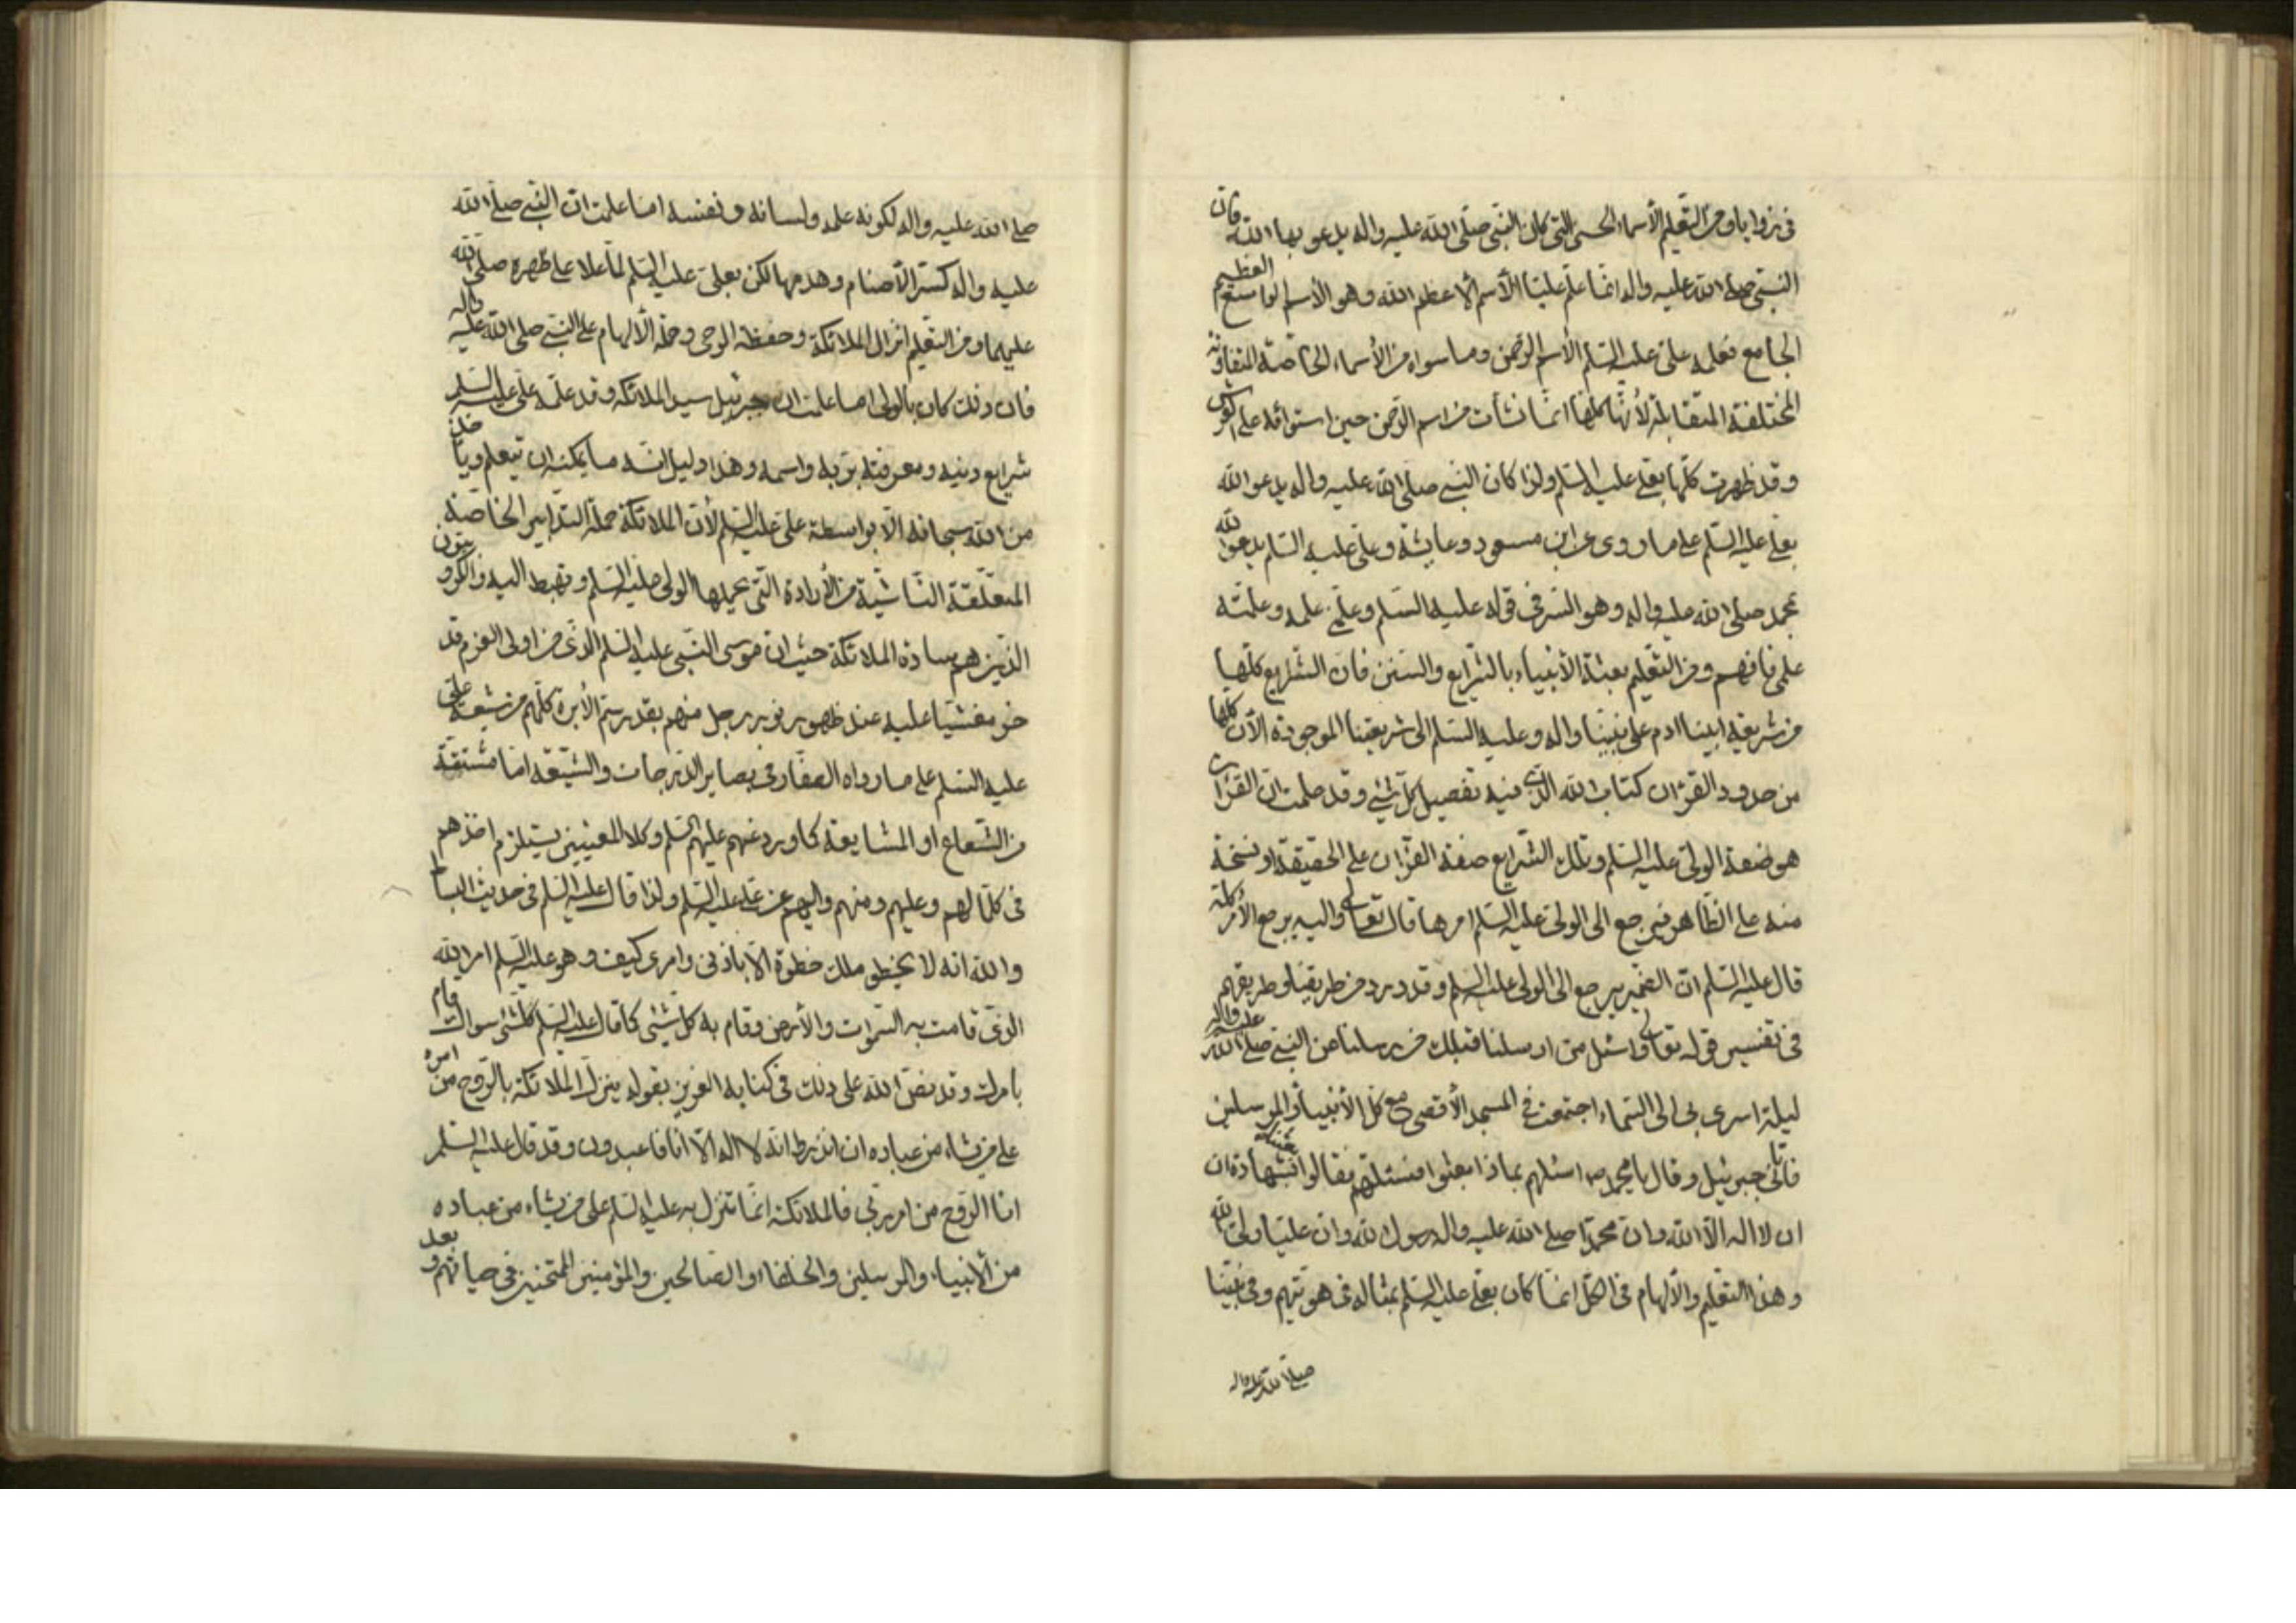 في زوايا ومن التعليم الأسماء الحسنى التي كان النبي صلى الله عليه واله يدعو بها الله فان
النبي صلى الله عليه واله انما علم عليا الأسم الأعظم الله وهو الأسم الواسع العظيم
الجامع فعلمه على عليه السلم الأسم الرحمن وما سواه من الأسماء الخاصة المتفاوتة
المختلفة المتقابلة لأنها كلها انما نشأت من اسم الرحمن حين استوائه على العرش
وقد ظهرت كلها بعلي عليه السلم ولذا كان النبي صلى الله عليه واله يدعو الله
بعلي عليه السلم على ما روى عن ابن مسعود وعايشة وعلى عليه السلم يدعو الله
بمحمد صلى الله عليه واله وهو السر في قوله عليه السلم وعلمني علمه وعلمته
علمي فافهم ومن التعليم بعثة الأنبياء بالشرايع والسنن فان الشرايع كلها
من شريعة ابينا ادم على نبينا واله وعليه السلم الى شريعتنا الموجودة الآن كلها
من حدود القرءان كتاب الله الذي فيه تفصيل كل شئ وقد علمت ان القرءان
هو صفة الولي عليه السلم وتلك الشرايع صفة القرءان على الحقيقة او نسخة
منه على الظاهر فيرجع الى الولي عليه السلم امرها قال تعالى واليه يرجع الأمر كله
قال عليه السلم ان الضمير يرجع الى الولي عليه السلم وقد ورد من طريقنا وطريقهم
في تفسير قوله تعالى واسئل من ارسلنا قبلك من رسلنا عن النبي صلى الله عليه واله
ليلة اسرى بي الى السماء اجتمعت في المسجد الأقصى مع كل الأنبياء والمرسلين
فاتاني جبرئيل وقال يا محمد ص اسئلهم بماذا بعثوا فسئلتهم فقالوا بشهادة ان
ان لا اله الا الله وان محمدا صلى الله عليه واله رسول الله وان عليا ولي الله
وهذا التعليم والألهام في الكل انما كان بعلي عليه السلم بمثاله في هويتهم وفي نبينا
صلى الله عليه واله
صلى الله عليه واله لكونه علمه ولسانه ونفسه اما علمت ان النبي صلى الله
عليه واله كسر الأصنام وهدمها لكن بعلي عليه السلم لما علا على ظهره صلى الله
عليهما ومن التعليم انزال الملائكة وحفظة الوحى وحملة الألهام على النبي صلى الله عليه واله
فان ذلك كان بالولي اما علمت ان جبرئيل سيد الملائكة وقد علمه على عليه السلم
شرايع دينه ومعرفته بربه واسمه وهذا دليل انه ما يمكنه ان يتعلم وياخذ
من الله سبحانه الا بواسطة على عليه السلم لأن الملائكة حملة التدابير الخاصة
المتعلقة الناشية من الأرادة التي يحملها الولي عليه السلم وتهبط اليه والكروبيون
الذين هم سادة الملائكة حيث ان موسى النبي عليه السلم الذي من اولى العزم قد
خر مغشيا عليه عند ظهور نور رجل منهم بقدر سم الأبرة كلهم من شيعة علي
عليه السلم على ما رواه الصفار في بصاير الدرجات والشيعة اما مشتقة
من الشعاع او المشايعة كما ورد عنهم عليهم السلم وكلا المعنيين يستلزم اخذهم
في كلما لهم وعليهم ومنهم واليهم عن علي عليه السلم ولذا قال عليه السلم في حديث البساط
والله انه لا يخطو ملك خطوة الا باذني وامري كيف وهو عليه السلم امر الله
الذي قامت به السموات والأرض وقام به كل شئ كما قال عليه السلم كل شئ سواك قام
بامرك وقد نص الله على ذلك في كتابه العزيز بقوله ينزل الملائكة بالروح من امره
على من يشاء من عباده ان انذروا انه لا اله الا انا فاعبدون وقد قال عليه السلم
انا الروح من امر ربي فالملائكة انما تنزل به عليه السلم على من يشاء من عباده
من الأنبياء والمرسلين والخلفاء والصالحين والمؤمنين الممتحنين في حياتهم وبعد